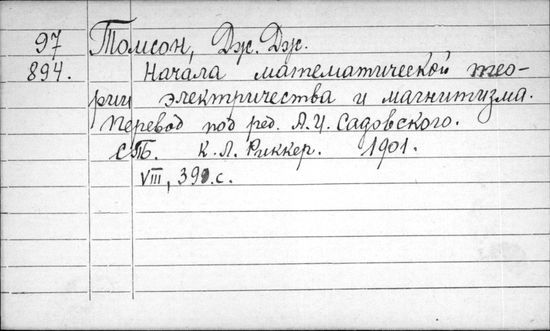 97 Томсон, Дж. Дж.
894. Начала математической тео-
рии электричества и магнитизма.
Перевод под ред. А.И. Садовского.
СПБ. К.Л. Риккер. 1901.
VIII, с.